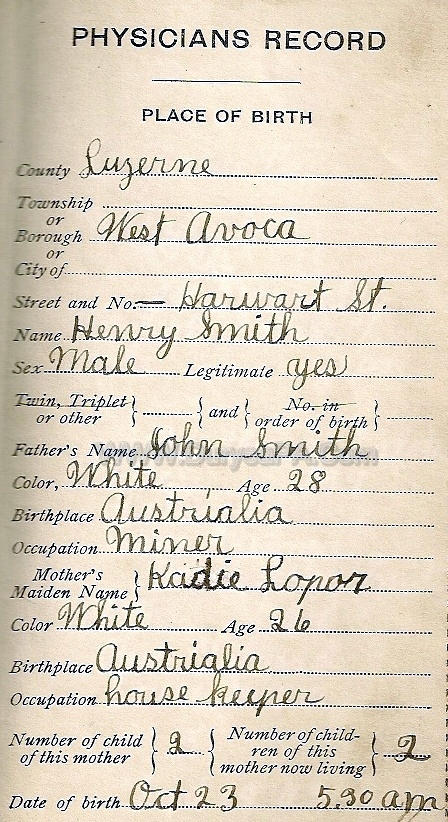 PHYSICIANS RECORD
PLACE OF BIRTH
County Luzerne
Township
or
Borough West Avoca
or
City of
Street and No. — Harwart St.
Name Henry Smith
Sex Male Legitimate yes
Twin, Triplet or other } { and } No. in order of birth }
Father's Name John Smith
Color, White Age 28
Birthplace Austrialia
Occupation Miner
Mother's Maiden Name } Kadie Lopor
Color White Age 26
Birthplace Austrialia
Occupation house keeper
Number of child of this mother } 2 { Number of children of this mother now living } 2
Date of birth Oct 23 5.30 am